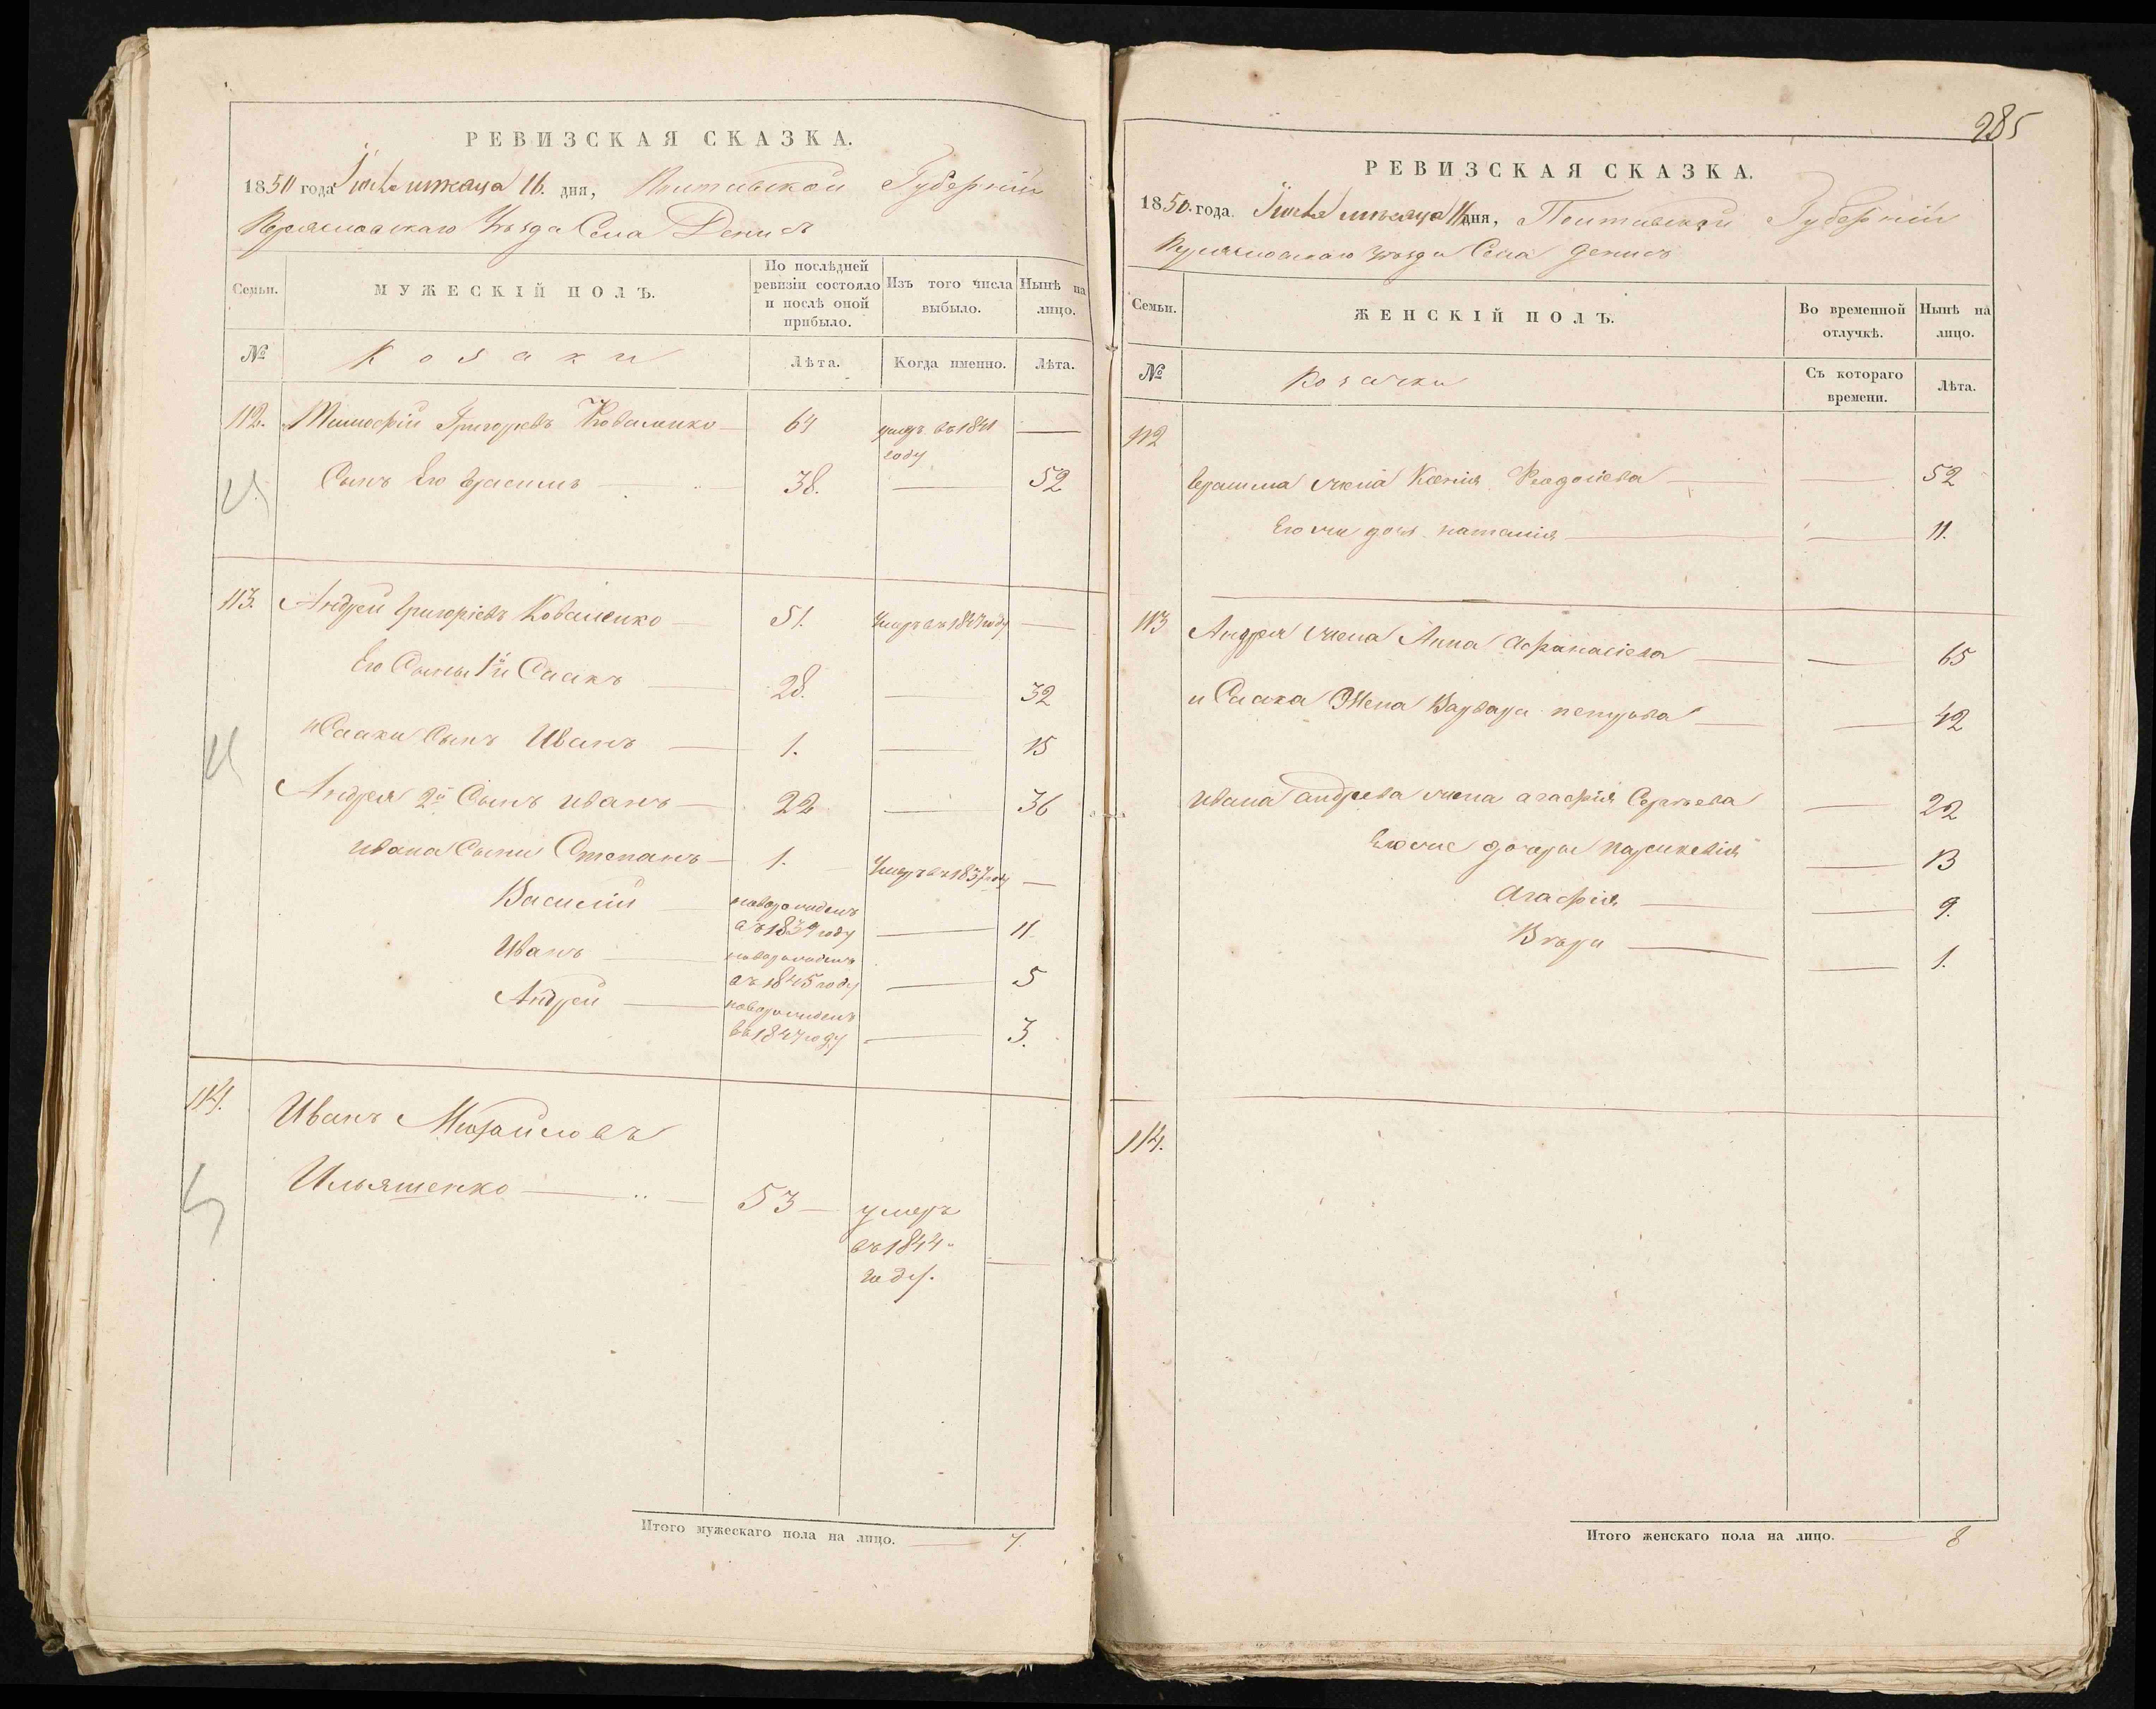 РЕВИЗСКАЯ СКАЗКА.
1850 года Июня месяца 16. дня, Полтавской Губерніи
Переяславскаго Уѣзда Села Денисъ
Семьи.
МУЖЕСКІЙ ПОЛЪ.
По послѣдней ревизіи состояло и послѣ оной прибыло.
Изъ того числа выбыло.
Нынѣ на лицо.
№
Козаки
Лѣта.
Когда именно.
Лѣта.
112. Тимофій Григорьевъ Коваленко — 64 умеръ въ 1841 году —
Сынъ Его Герасимъ — 38. — 52
113. Андрей Григоріевъ Коваленко — 51. Умеръ въ 1847 году —
Его Сыны 1й Исаакъ — 28. — 32
Исаака Сынъ Иванъ — 1. — 15
Андрея 2й Сынъ Иванъ — 22 — 36
Ивана Сыны Степанъ — 1. Умеръ въ 1837 году —
Василій — новорожденъ въ 1839 году — 11
Иванъ — новорожденъ въ 1845 году — 5
Андрей — новорожденъ въ 1847 году — 3.
114. Иванъ Михайловъ
Ильяшенко — 53 — умеръ въ 1844 году. —
Итого мужескаго пола на лицо. — 7.
285
РЕВИЗСКАЯ СКАЗКА.
1850. года. Июня месяца 16 дня, Полтавской Губерніи
Переяславскаго Уѣзда Села Денисъ
Семьи.
ЖЕНСКІЙ ПОЛЪ.
Во временной отлучкѣ.
Нынѣ на лицо.
№
Козачки
Съ котораго времени.
Лѣта.
112
Герасима жена Ксенія Феодосіева — — 52
Его же дочь наталія — — 11.
113 Андрея жена Анна Афанасіева — — 65
Исаака Жена Варвара петрова — — 42
Ивана Андреева жена агафія Сергѣева — 22
Его же дочери параскевія — 13
Агафія — — 9.
Вѣра — — 1.
114.
Итого женскаго пола на лицо. — 8